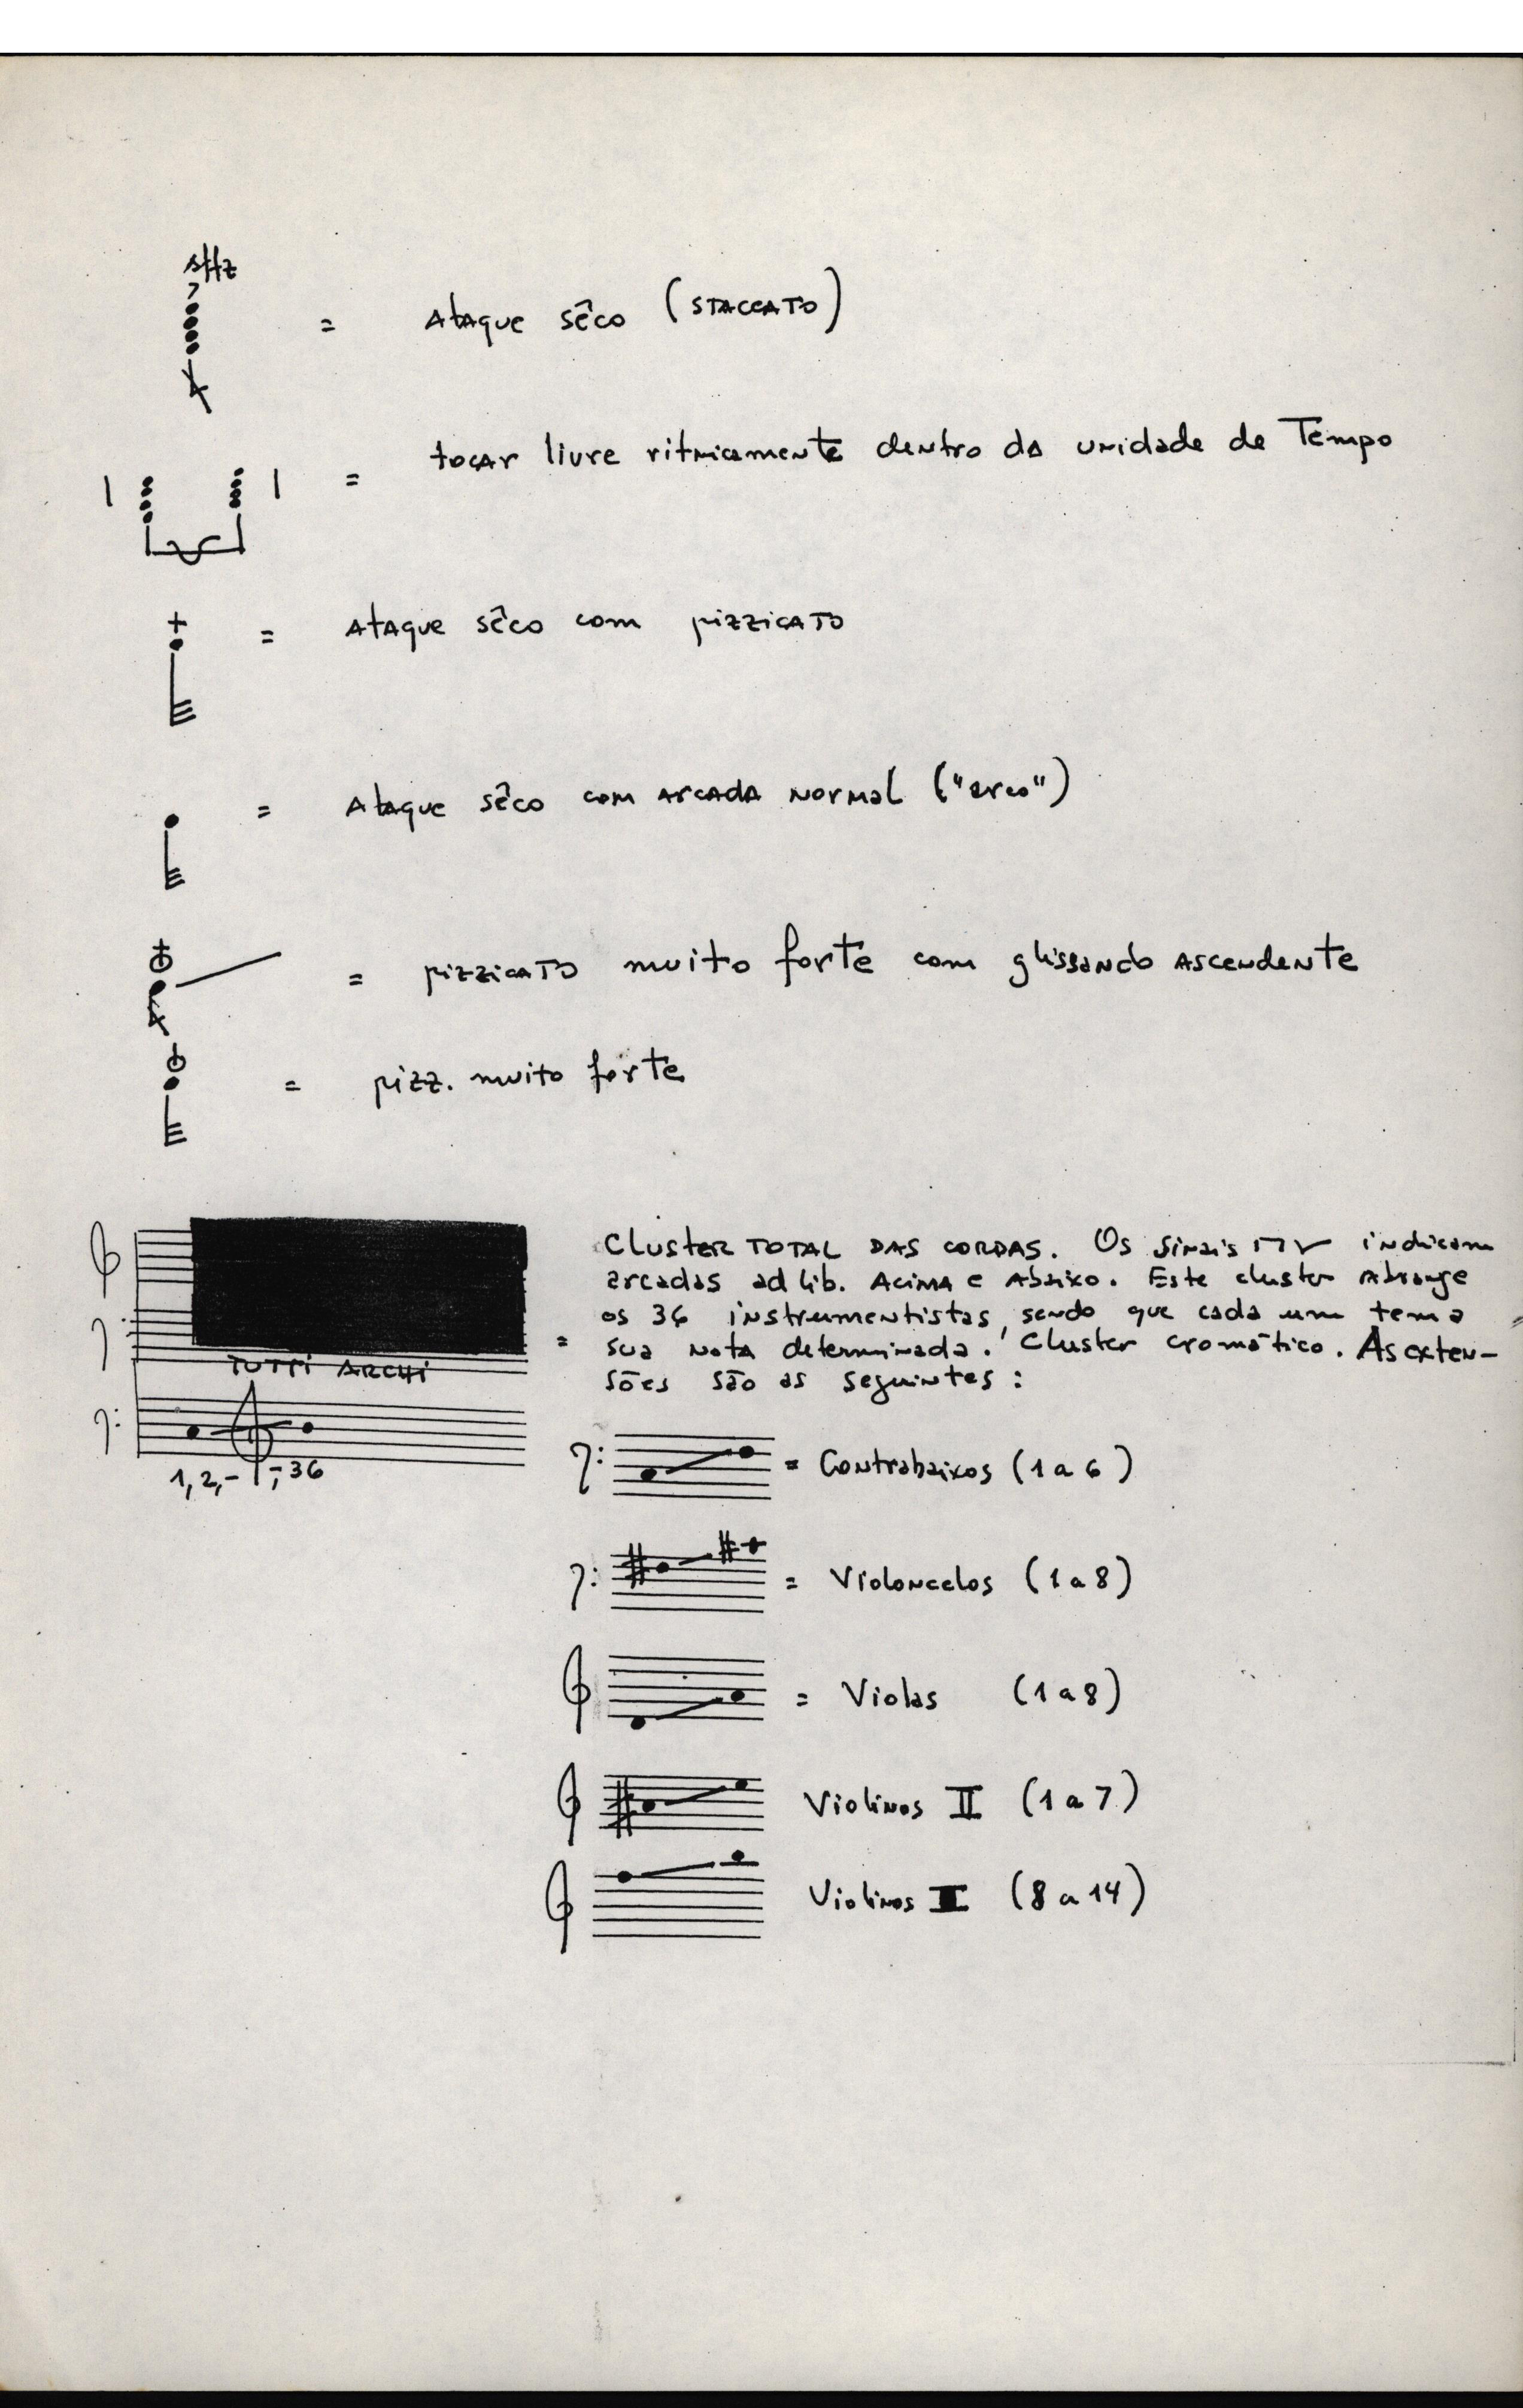 sffz
= Ataque sêco (STACCATO)
= tocar livre ritmicamente dentro da unidade de Tempo
+
= Ataque sêco com pizzicato
= Ataque sêco com arcada normal ("arco")
= pizzicato muito forte com glissando ascendente
= pizz. muito forte
= Cluster TOTAL DAS CORDAS. Os sinais ⊓ V indicam
arcadas ad lib. Acima e Abaixo. Este cluster Abrange
os 36 instrumentistas, sendo que cada um tem a
sua nota determinada. Cluster cromático. As exten-
sões são as seguintes:
TUTTI ARCHI
1, 2, - -, 36
= Contrabaixos (1 a 6)
= Violoncelos (1 a 8)
= Violas (1 a 8)
Violinos II (1 a 7)
Violinos (8 a 14)